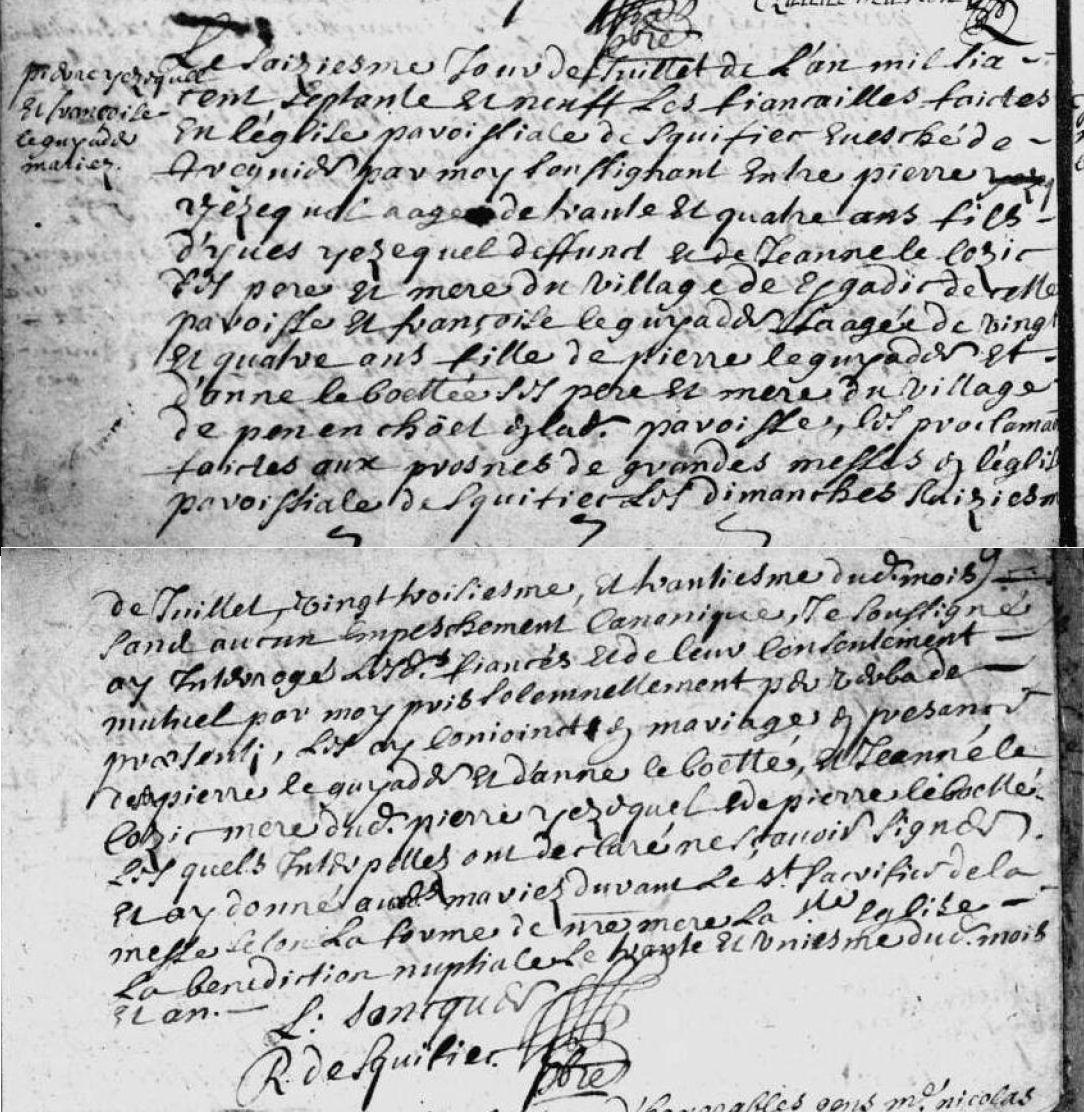 pierre yezequel
Et françoise
le guyader
mariez.
Le saiziesme Jour de Juillet de L'an mil six
cent septante Et neuff Les fiancailles faictes
En léglise paroissiale de Squifiec Euesché de
Treguier par moy soussignant Entre pierre
yezequel aage de trante Et quatre ans fils
d'yues yezequel deffunct Et de Jeanne le cozic
ses pere Et mere du village de de cette
paroisse Et françoise le guyader aagée de vingt
Et quatre ans fille de pierre le guyader Et
d'anne le boettée ses pere Et mere du village
de pen en chöet paroisse, les proclama
faictes aux prosnes de grandes messes en léglis
paroissiale de Squifiec Les dimanches Saiziesm
de Juillet, vingt troisiesme, Et trantiesme dud. mois
sans aucun Empeschement Canonique, Je soussigné
ay Interrogé Lesd.s fiancés Et de leur Consentement
mutuel par moy pris solemnellement per verba de
præsenti, Les ay Conioinct en mariage en presance
de pierre le guyader Et d'anne le boetté, Et Jeanne le
Cozic mere dud. pierre yezequel Et de pierre le boetté
Les quels Interpelles ont declaré ne sçauoir signer.
Et ay donné auxd. mariez durant Le st. sacrifice de la
messe selon La forme de nre mere La ste Eglise
La benediction nuptiale Le trante Et vniesme dud. mois
Et an.
L: Joncquer
R. de Squifiec pbre
honorables gens me. nicolas